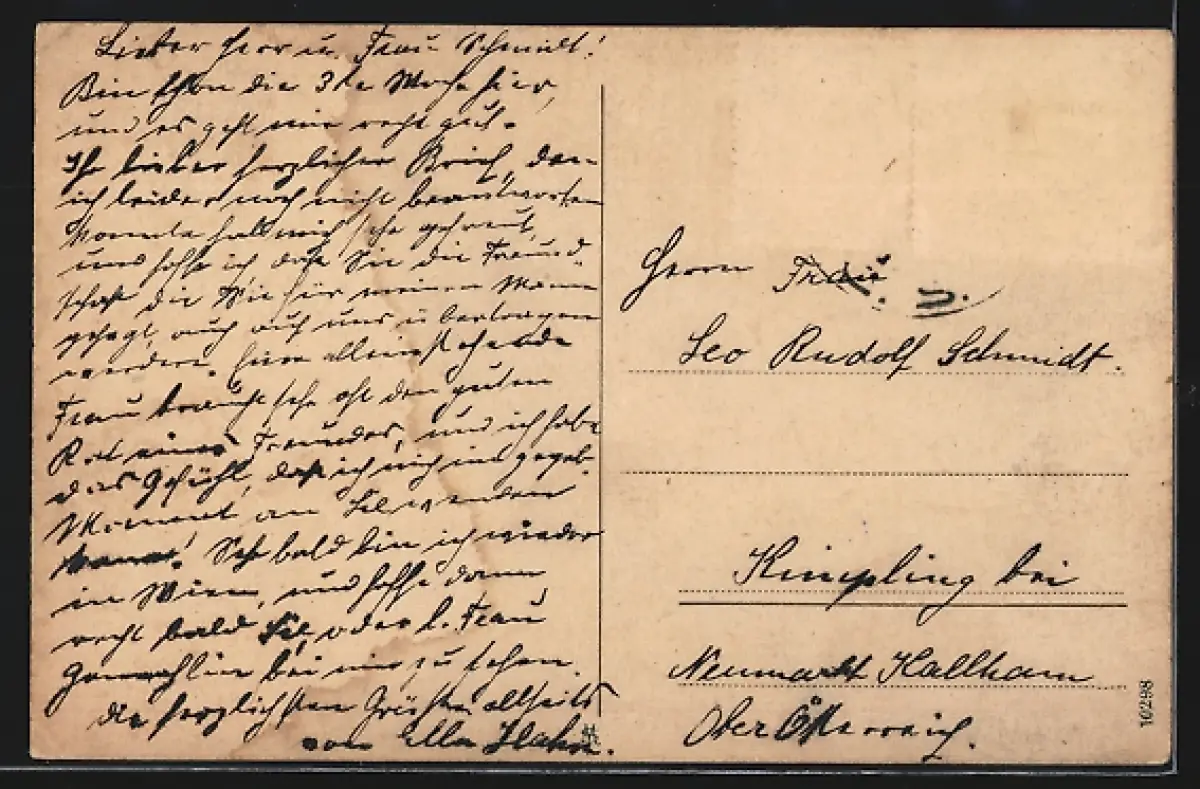 Lieber Herr u. Frau Schmidt!
Bin schon die 3te Woche hier,
und es geht mir recht gut.
Ihr lieber herzlicher Brief, den
ich leider noch nicht beantworten
konnte hat mich sehr gefreut,
und hoffe ich, daß Sie die Freund-
schaft die Sie für meinen Mann
gehegt, auch auf uns übertragen
werden. Eine alleinstehende
Frau braucht sehr oft den guten
Rat eines Freundes, und ich habe
das Gefühl, daß ich mich im gegeb.
Moment an Sie wenden
kann! Sehr bald bin ich wieder
in Wien, und hoffe dann
recht bald Sie, oder l. Frau
Gemahlin bei mir zu sehen.
Die herzlichsten Grüße allseits
von Ella Hahn.
Herrn Frau u.
Leo Rudolf Schmidt.
Kimpling bei
Neumarkt Kallham
Ober Österreich.
10298